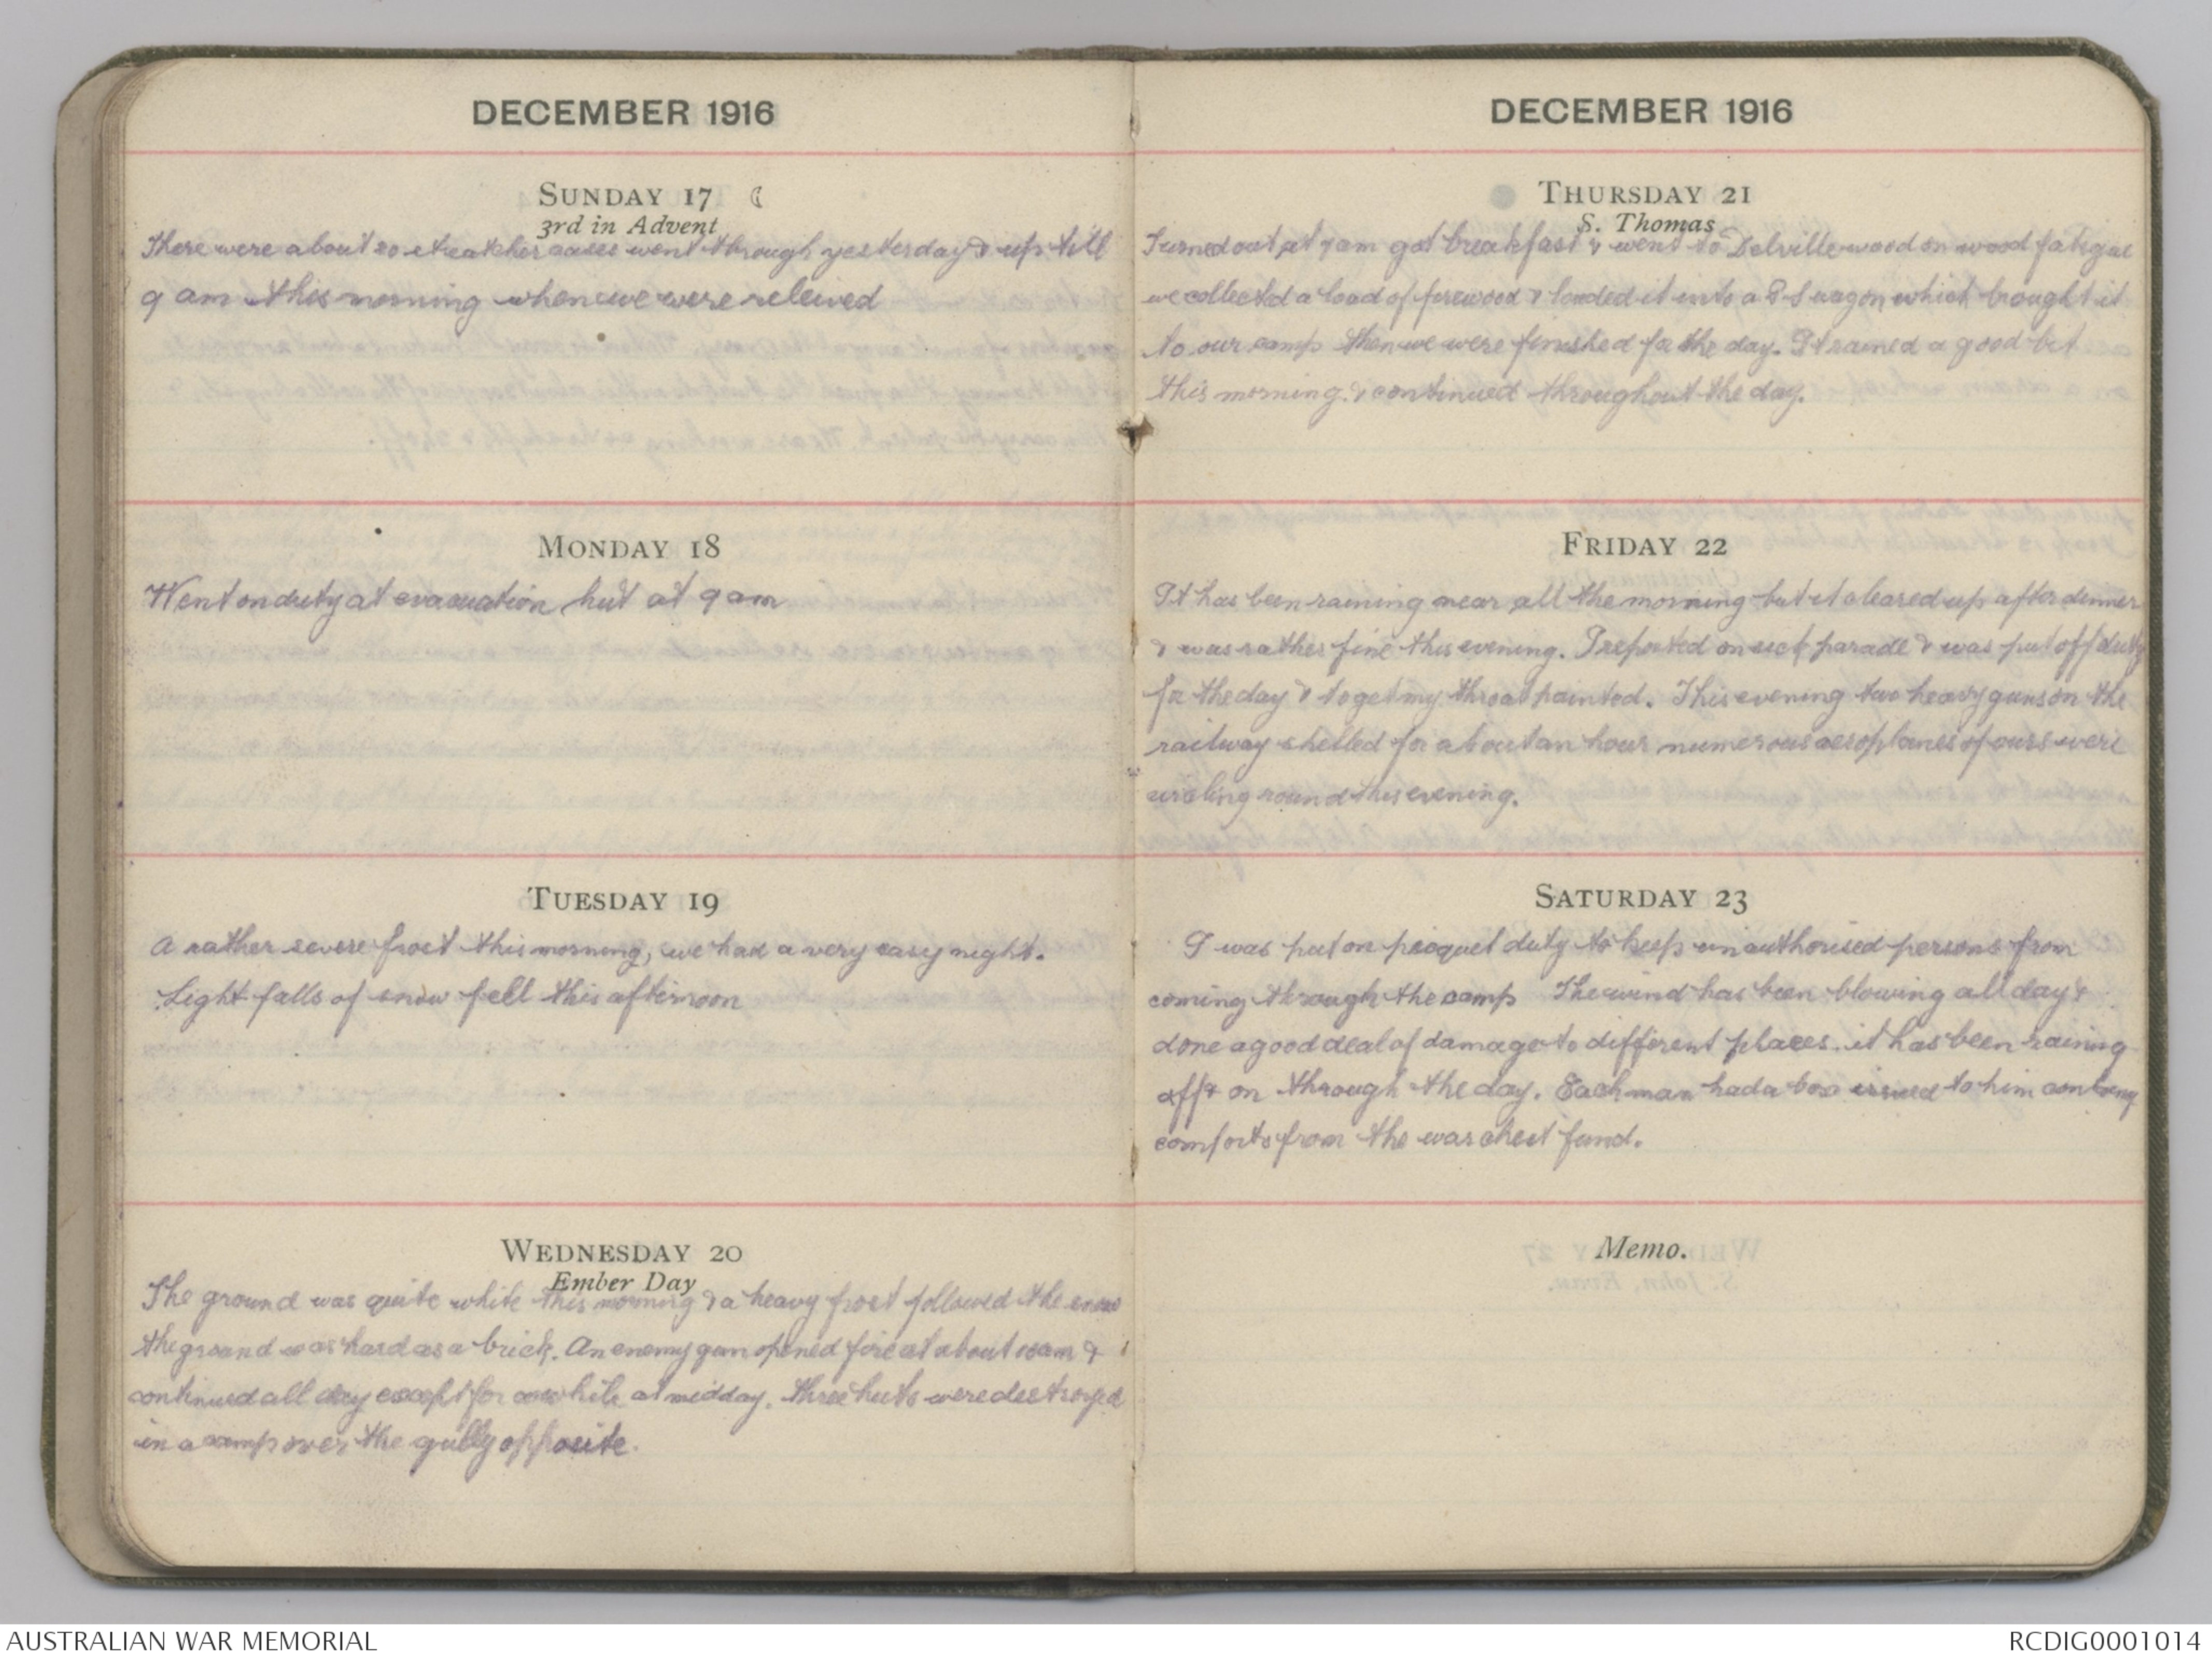 DECEMBER 1916
SUNDAY 17
3rd in Advent
There were about 20 streatcher cases went through yesterday & up till
9 am this morning when we were releived
MONDAY 18
Went on duty at evacuation hut at 9 am
TUESDAY 19
A rather severe frost this morning, we had a very easy night.
Light falls of snow fell this afternoon
WEDNESDAY 20
Ember Day
The ground was quite white this morning & a heavy frost followed the snow
the ground was hard as a brick. An enemy gun opened fire at about &
continued all day except for awhile at midday. three huts were destroyed
in a camp over the gully opposite.
DECEMBER 1916
THURSDAY 21
S. Thomas
Turned out at 7 am got breakfast & went to Delville wood on wood fatigue
we collected a load of firewood & loaded it into a G S wagon which brought it
to our camp then we were finished for the day. It rained a good bit
this morning. & continued throughout the day.
FRIDAY 22
It has been raining near all the morning but it cleared up after dinner
& was rather fine this evening. I reported on sick parade & was put off duty
for the day & to get my throat painted. This evening two heavy guns on the
railway shelled for about an hour numerous aeroplanes of ours were
circling round this evening.
SATURDAY 23
I was put on picquet duty to keep unauthorised persons from
coming through the camp The wind has been blowing all day &
done a good deal of damage to different places. it has been raining
off & on through the day. Each man had a box issued to him
comforts from the war chest fund.
Memo.
AUSTRALIAN WAR MEMORIAL
RCDIG0001014